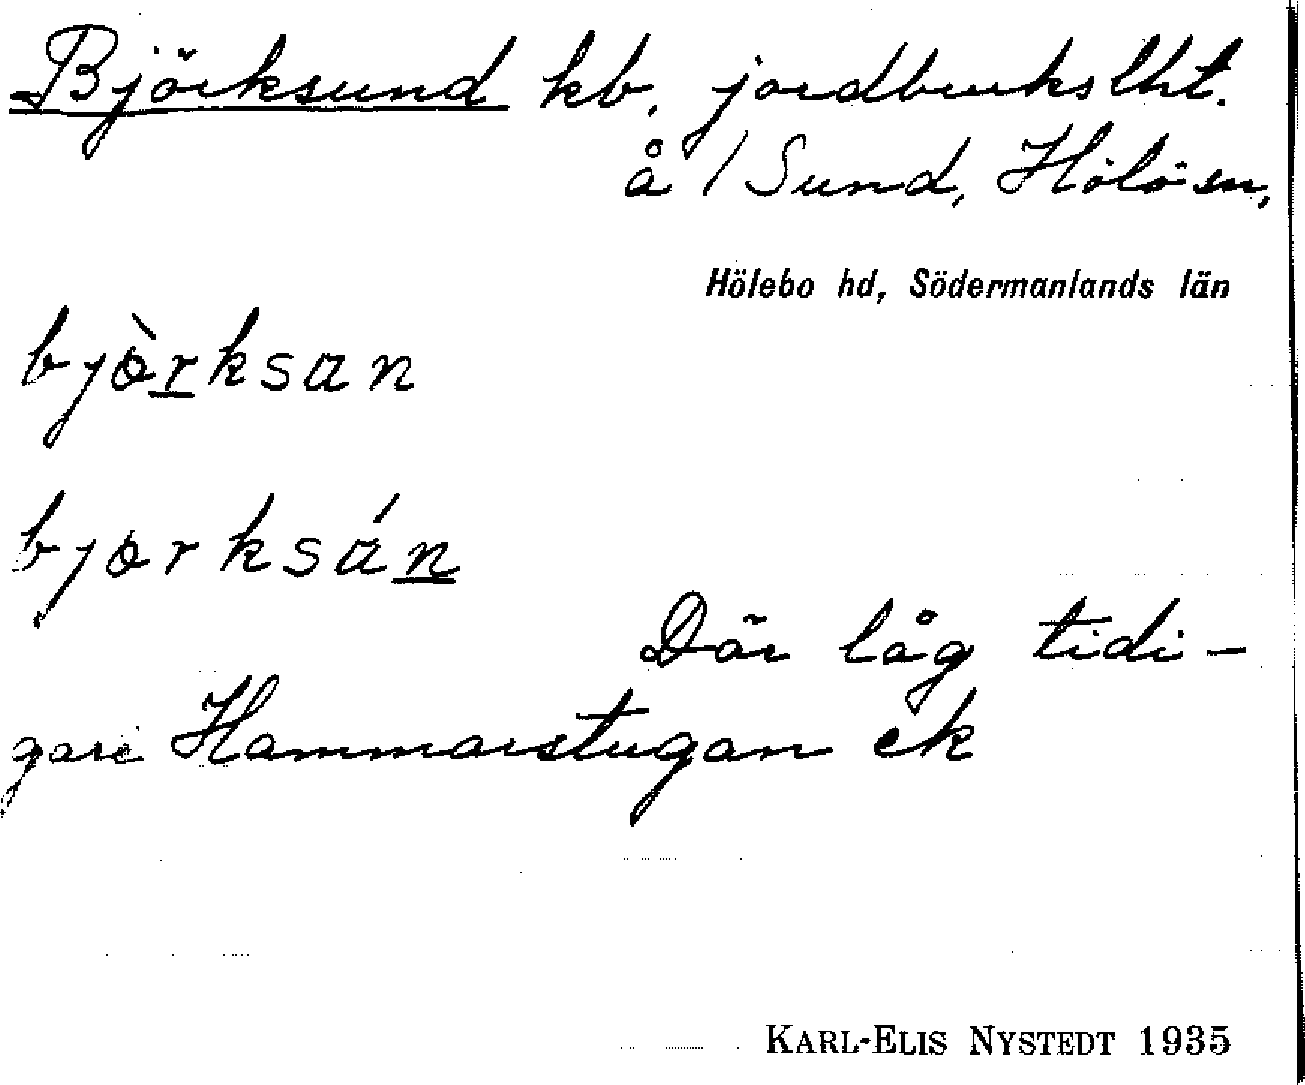 Björksund kb, jordbrukslht.
å 1 Sund, Hölö sn,
Hölebo hd, Södermanlands län
bjòrksan
bjorksán
Där låg tidi-
gare Hammarstugan ek
KARL-ELIS NYSTEDT 1935